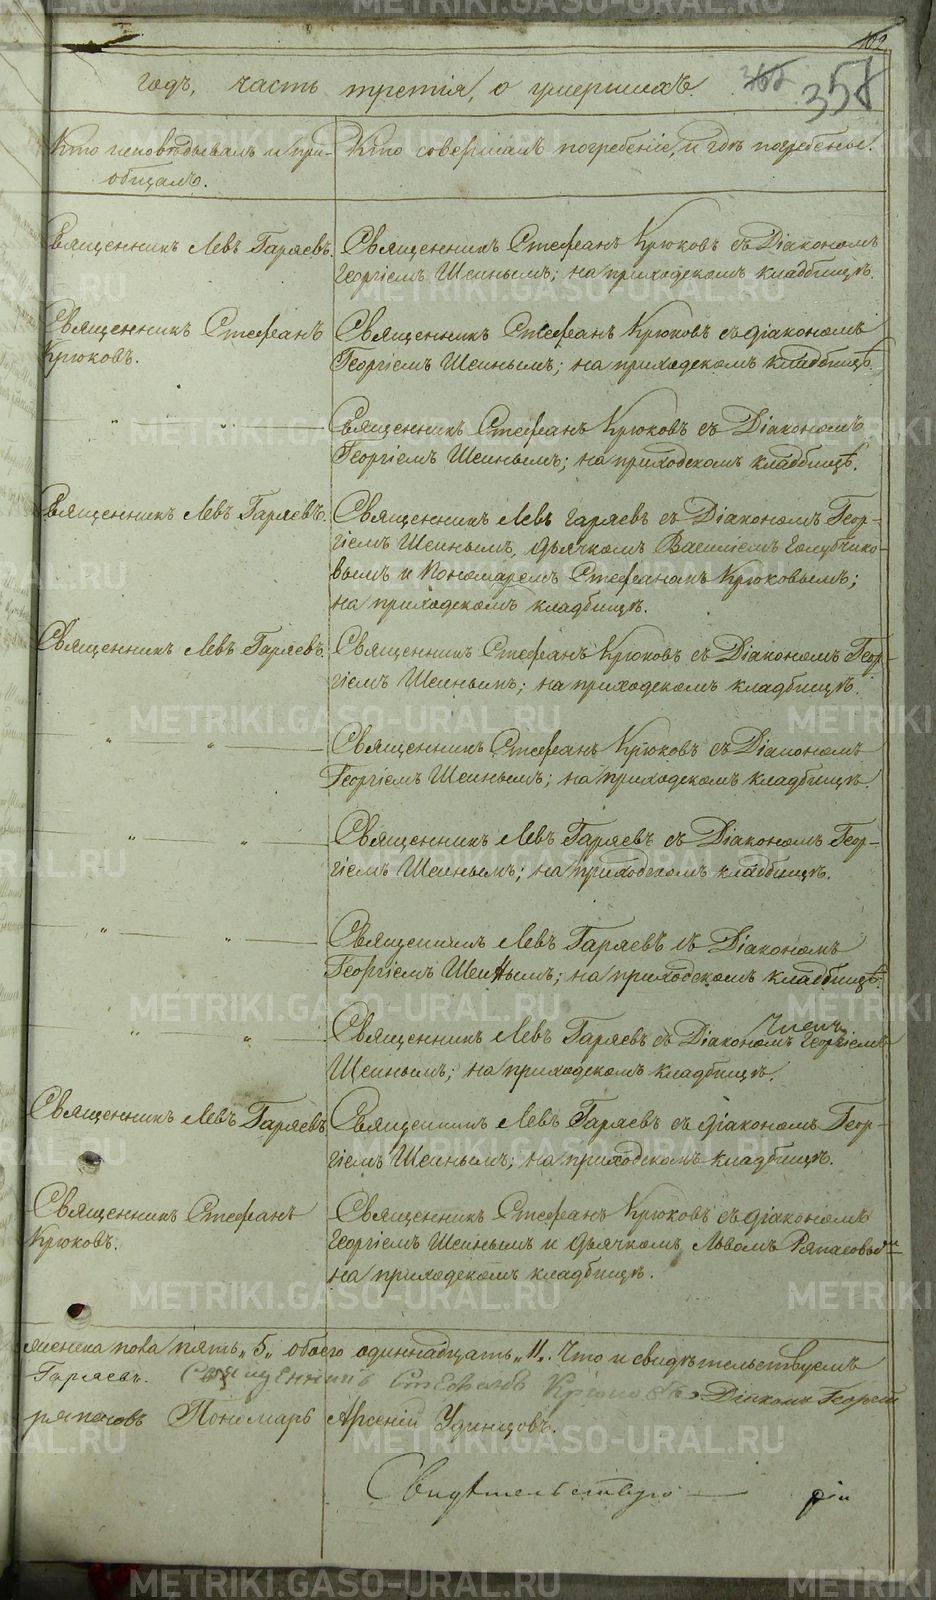 102
358
годъ, часть третія, о умершихъ.
Кто исповѣдывалъ и прі-
общалъ.
Кто совершалъ погребеніе, и гдѣ погребены.
Священникъ Левъ Гаряевъ.
Священникъ Стефанъ Крюковъ съ Діакономъ
Георгіемъ Шеинымъ; на приходскомъ кладбищѣ.
Священникъ Стефанъ
Крюковъ.
Священникъ Стефанъ Крюковъ съ діакономъ
Георгіемъ Шеинымъ; на приходскомъ кладбищѣ.
„ „
Священникъ Стефанъ Крюковъ съ Діакономъ
Георгіемъ Шеинымъ; на приходскомъ кладбищѣ.
Священникъ Левъ Гаряевъ.
Священникъ Левъ Гаряевъ съ Діакономъ Геор-
гіемъ Шеинымъ, дьячкомъ Василіемъ Голубчико-
вымъ и Пономаремъ Стефаномъ Крюковымъ;
на приходскомъ кладбищѣ.
Священникъ Левъ Гаряевъ.
Священникъ Стефанъ Крюковъ съ Діакономъ Геор-
гіемъ Шеинымъ; на приходскомъ кладбищѣ.
„ „
Священникъ Стефанъ Крюковъ съ Діакономъ
Георгіемъ Шеинымъ; на приходскомъ кладбищѣ.
„ „
Священникъ Левъ Гаряевъ съ Діакономъ Геор-
гіемъ Шеинымъ; на приходскомъ кладбищѣ.
„ „
Священникъ Левъ Гаряевъ съ Діакономъ
Георгіемъ Шеинымъ; на приходскомъ кладбищѣ.
„ „
Священникъ Левъ Гаряевъ съ Діакономъ Георгіемъ
Шеинымъ; на приходскомъ кладбищѣ.
Священникъ Левъ Гаряевъ
Священникъ Левъ Гаряевъ съ діакономъ Геор-
гіемъ Шеинымъ; на приходскомъ кладбищѣ.
Священникъ Стефанъ
Крюковъ.
Священникъ Стефанъ Крюковъ съ діакономъ
Георгіемъ Шеинымъ и дьячкомъ Львомъ
на приходскомъ кладбищѣ.
женска пола пять „5„ обоего одиннадцать „11„. Что и свидѣтельствуемъ
Гаряевъ. Священникъ Стефанъ Крюковъ, Діаконъ Георгій
Пономарь Арсеній Удинцовъ.
Свидѣтельствую
METRIKI.GASO-URAL.RU